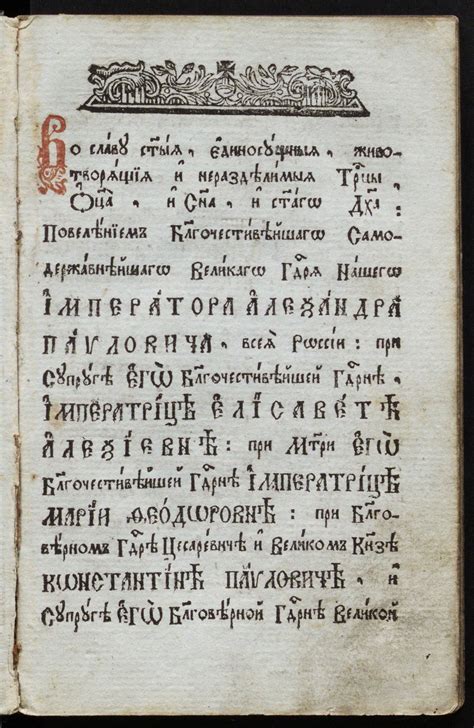 Во славу ст҃ыѧ, є҆диносꙋ́щныѧ, живо-
творѧ́щїѧ и҆ нераздѣли́мыѧ Трⷪ҇цы
Ѻ҆ц҃а, и҆ Сн҃а, и҆ ст҃а́гѡ Дх҃а:
Повелѣ́нїемъ Бл҃гочести́вѣйшагѡ Само-
держа́внѣйшагѡ Вели́кагѡ Гд҇рѧ На́шегѡ
І҆МПЕРА́ТОРА А҆ЛЕѮА́НДРА
ПА́ѴЛОВИЧА, всеѧ̀ Рѡссі́и: при
Сꙋпрꙋ́гѣ Є҆ГѠ̀ Бл҃гочести́вѣйшей Гд҇рнѣ,
І҆МПЕРАТРИ́ЦѢ Є҆ЛІСАВЕ́ТѢ
А҆ЛЕѮІ́ЕВНѢ: при Мт҃ри Є҆ГѠ̀
Бл҃гочести́вѣйшей Гд҇рнѣ І҆МПЕРАТРИ́ЦѢ
МАРІ́И ѲЕО́ДѠРОВНѢ: при Бл҃го-
вѣ́рномъ Гд҇рѣ Цесаре́вичѣ и҆ Вели́комъ Кнѧ́зѣ
КѠНСТАНТІ́НѢ ПА́ѴЛОВИЧѢ, и҆
Сꙋпрꙋ́гѣ Є҆ГѠ̀ Бл҃говѣ́рной Гд҇рнѣ Вели́кой